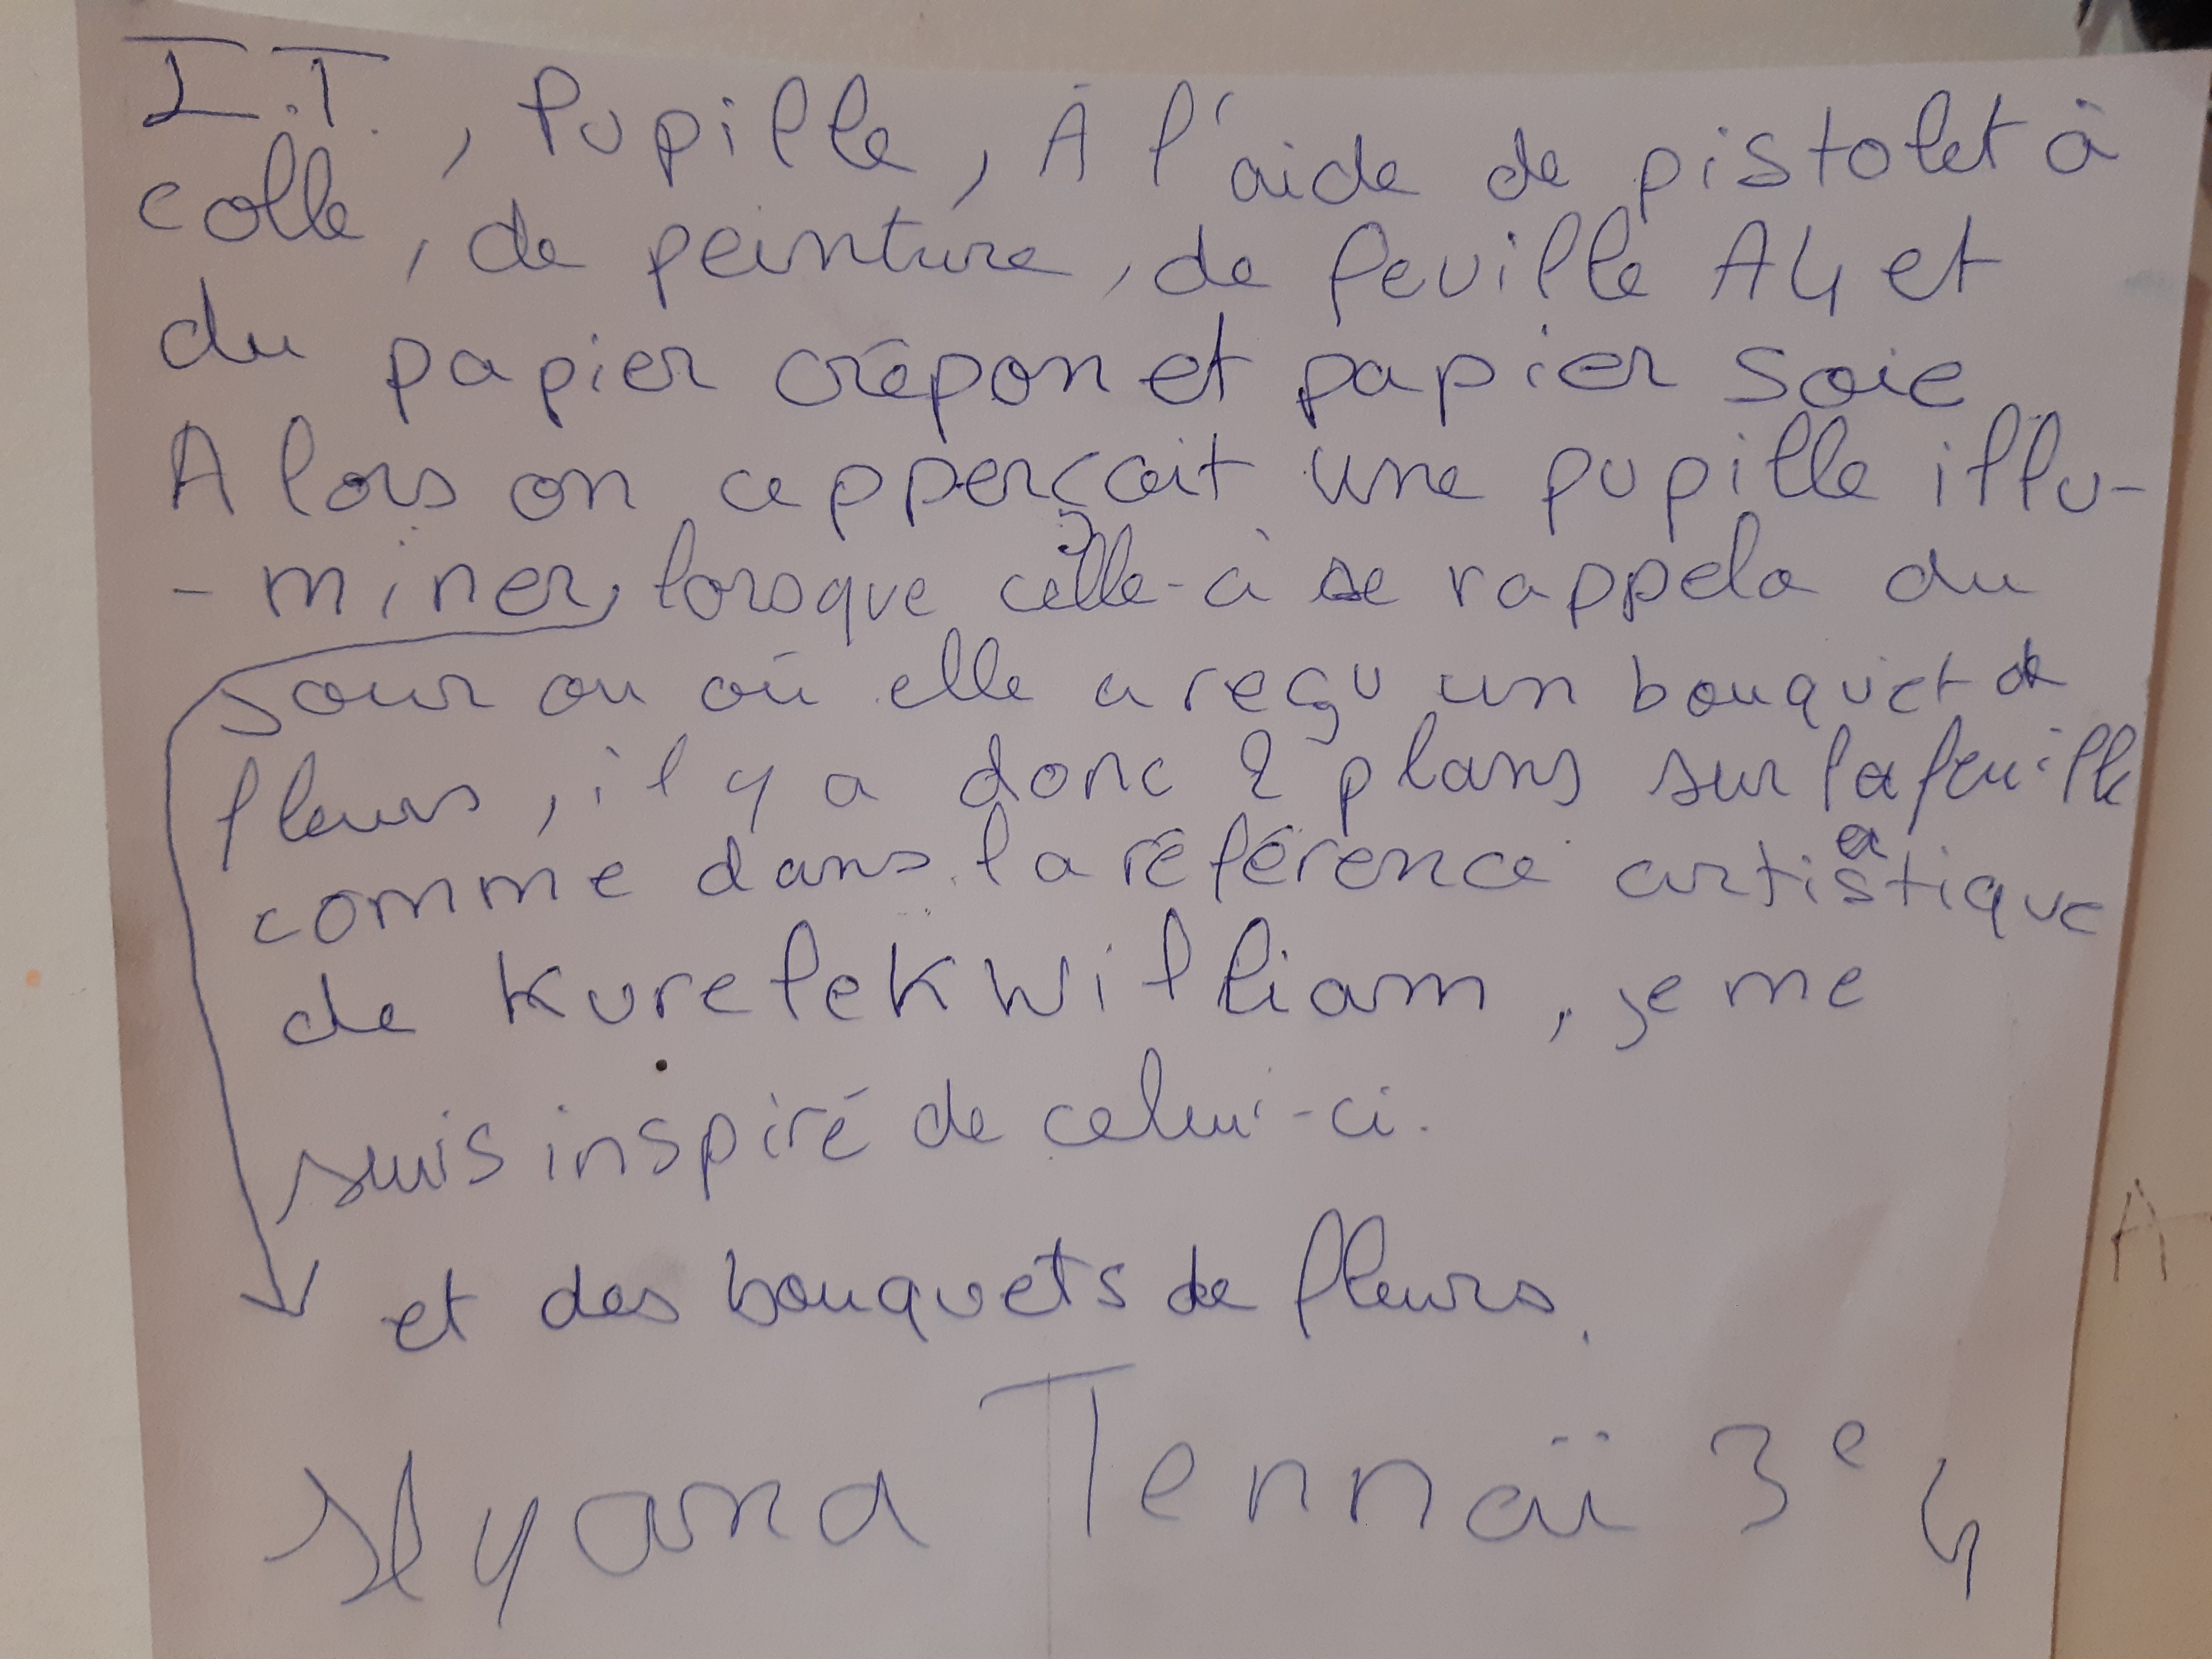 I.T., Pupille, À l'aide de pistolet à
colle, de peinture, de feuille A4 et
du papier crépon et papier soie
Alors on apperçoit une pupille illu-
-miner, lorsque celle-ci se rappela du
jour ou où elle a reçu un bouquet de
fleurs, il y a donc 2 plans sur la feuille
comme dans la référence artistique
de Kurelek William, je me
suis inspiré de celui-ci.
et des bouquets de fleurs.
Ilyana Tennaïi 3e4
A